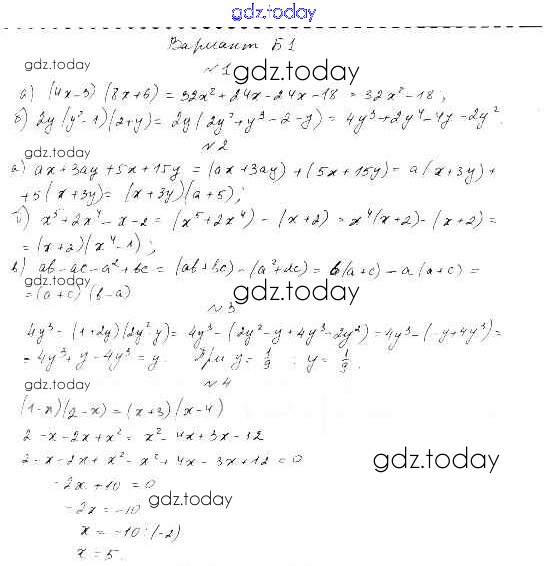 gdz.today
Вариант Б1
gdz.today
№1
gdz.today
а) (4x-3)(8x+6) = 32x²+24x-24x-18 = 32x²-18;
б) 2y(y²-1)(2+y) = 2y(2y²+y³-2-y) = 4y³+2y⁴-4y-2y².
gdz.today
№2
а) ax+3ay+5x+15y = (ax+3ay)+(5x+15y) = a(x+3y)+
+5(x+3y) = (x+3y)(a+5);
gdz.today
gdz.today
б) x⁵+2x⁴-x-2 = (x⁵+2x⁴)-(x+2) = x⁴(x+2)-(x+2) =
= (x+2)(x⁴-1);
в) ab-ac-a²+bc = (ab+bc)-(a²+ac) = b(a+c)-a(a+c) =
gdz.today
= (a+c)(b-a)
gdz.today
№3
4y³-(1+2y)(2y²-y) = 4y³-(2y²-y+4y³-2y²) = 4y³-(-y+4y³) =
= 4y³+y-4y³ = y. При y = 1/9 : y = 1/9.
gdz.today
gdz.today
№4
(1-x)(2-x) = (x+3)(x-4)
2-x-2x+x² = x²-4x+3x-12
2-x-2x+x²-x²+4x-3x+12 = 0
gdz.today
-2x+10 = 0
gdz.today
-2x = -10
x = -10:(-2)
x = 5.